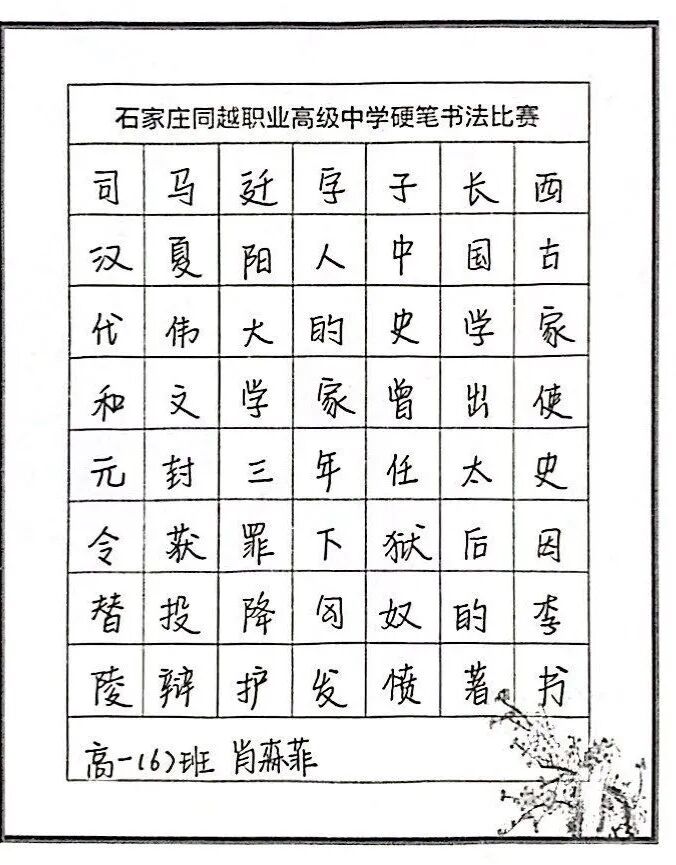 石家庄同越职业高级中学硬笔书法比赛
司马迁字子长西
汉夏阳人中国古
代伟大的史学家
和文学家曾出使
元封三年任太史
令获罪下狱后因
替投降匈奴的李
陵辩护发愤著书
高一(6)班 肖森菲